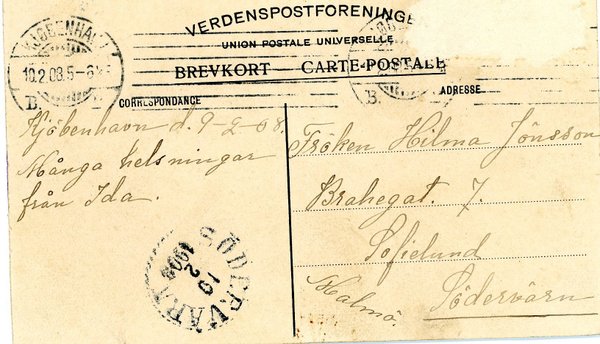 VERDENSPOSTFORENINGE
UNION POSTALE UNIVERSELLE
BREVKORT CARTE-POSTALE
CORRESPONDANCE
ADRESSE
KJØBENHAVN
10.2.08.5-6
B.
B.
Kjöbenhavn d. 9-2-08.
Många helsningar
från Ida.
Fröken Hilma Jönsson
Brahegat. 7.
Sofielund
Malmö.
Södervärn
SÖDERVÄRN
10
2
1908